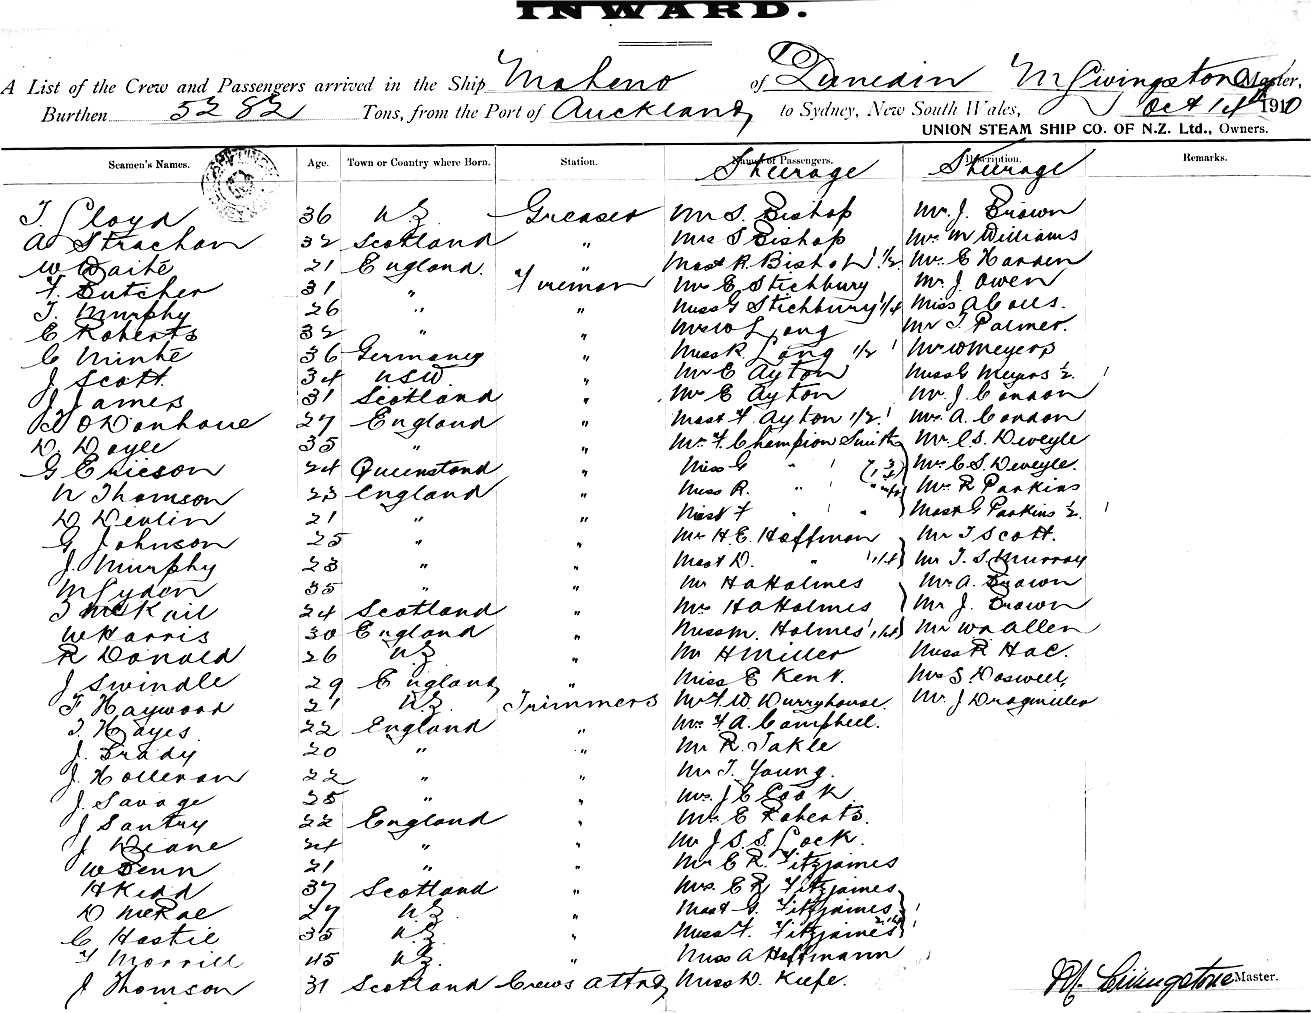 INWARD.
A List of the Crew and Passengers arrived in the Ship Maheno of Dunedin M Livingstone Master,
Burthen 5282 Tons, from the Port of Auckland to Sydney, New South Wales, Oct 14th 1910
UNION STEAM SHIP CO. OF N.Z. Ltd., Owners.
Seamen's Names. Age. Town or Country where Born. Station. Names of Passengers. Description. Remarks.
Steerage Steerage
T. Lloyd 36 NZ. Greaser Mr S. Bishop Mr. J. Brown
A Strachan 32 Scotland " Mrs S Bishop Mr. M Williams
W Waite 21 England. " Mast R. Bishop 1/2 Mr. E Harden
F. Butcher 31 " Fireman Mr E Stichbury Mr. J. Owen
T. Murphy 26 " " Miss G Stichbury 1/4 Miss A Coles.
E Roberts 32 " " Mrs W Long Mr T Palmer.
C Minte 36 Germany " Miss R. Long 1/2 1 Mr W Meyers
J Scott. 34 NSW. " Mr E Ayton Miss G Meyers 1/2 1
J James 31 Scotland " Mr E Ayton Mr. J. Condon
T O'Donhoue 27 England " Mast F. Ayton 1/2 1 Mrs A. Condon
D Doyle 35 " " Mr. F. Champion Smith Mr. C. S. Deveyle
G Ericson 24 Queenstond " Miss G " 1 Mrs C S. Deveyle.
N Thomson 23 England " Miss R. " 1 Mr R Parkins
D Devlin 21 " " Mast F " 1 " Mast G Parkins 1/2 1
G Johnson 25 " " Mr H. E. Hoffman Mr T Scott.
J. Murphy 23 " " Mast D. " 1/4 Mr T. S. Murray
M Lydon 35 " " Mr H A Holmes Mr A. Brown
T McKail 24 Scotland " Mrs H A Holmes Mr J. Brown
W Harris 30 England " Miss M. Holmes 1/4 Mr Wm Allen
R Donald 26 NZ. " Mr H Miller Miss R Hac.
J Swindle 29 England " Miss E Kent. Mrs S Doswell
F Haywood 21 NZ. Trimmers Mr F. W. Durryhouse. Mr. J Dragmiller
T. Hayes. 22 England " Mr. F A. Campbell.
J. Brady 20 " " Mr R. Takle
J. Holleran 22 " " Mr T. Young.
J. Savage 25 " " Mrs. J E Cook
J Santry 22 England " Mr. E Roberts.
J Deane 24 " " Mr J S. S. Lock.
W Benn 21 " " Mr E R. Fitzjames
H Kidd 37 Scotland " Mrs. E R Fitzjames
D McRae 27 NZ. " Mast G. Fitzjames 1
C Hastie 35 NZ. " Miss F. Fitzjames 1
F Morrill 45 NZ. " Miss A Hoffmann
J Thomson 31 Scotland Crews Attnd Miss D. Kiefe.
M. Livingstone Master.